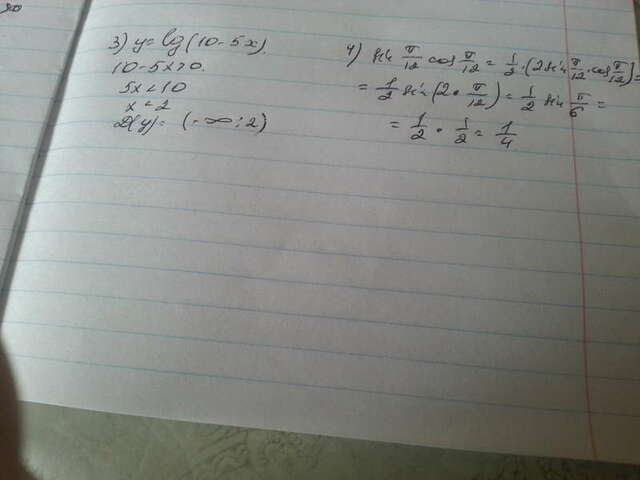 3) y = lg (10 - 5x)
10 - 5x > 0.
5x < 10
x < 2
D(y) = (-∞; 2)
4) sin π/12 cos π/12 = 1/2 · (2 sin π/12 · cos π/12) =
= 1/2 sin (2 · π/12) = 1/2 sin π/6 =
= 1/2 · 1/2 = 1/4